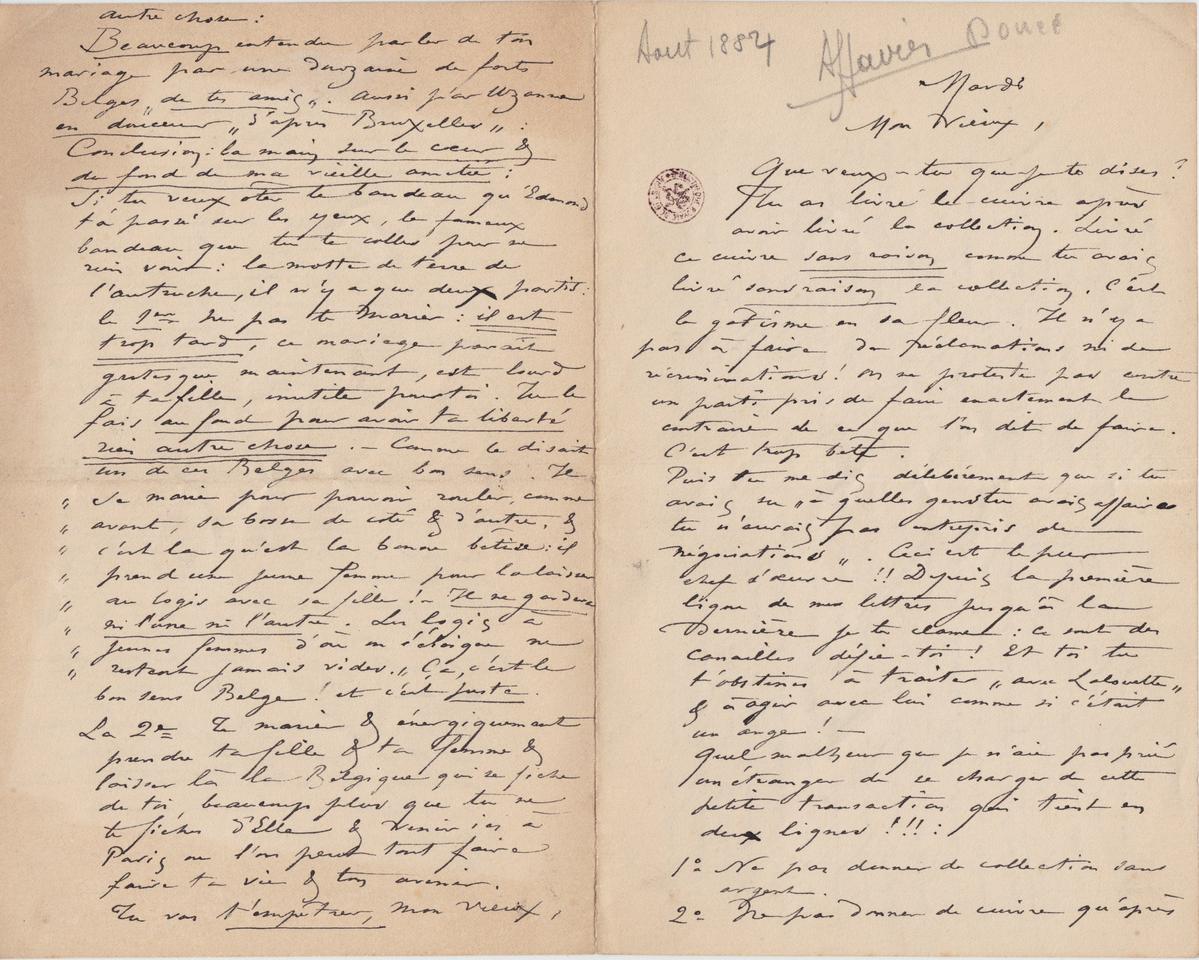 Aout 1884
Affaire Doucé
Mardi
Mon Vieux,
Que veux-tu que je te dises?
Tu as livré le cuivre après
avoir livré la collection. Livré
ce cuivre sans raison comme tu avais
livré sans raison la collection. C'est
le gâtisme en sa fleur. Il n'y a
pas à faire de réclamations ni de
récriminations! on ne proteste pas contre
un parti pris de faire exactement le
contraire de ce que l'on dit de faire.
C'est trop bête.
Puis tu me dis délibérément que si tu
avais su „à quelles gens tu avais affaire
tu n'aurais pas entrepris de
négociations„. Ceci est le pur
chef d'œuvre!! Depuis la première
ligne de mes lettres jusqu'à la
dernière je te clame: ce sont des
canailles défie-toi! Et toi tu
t'obstines à traiter „avec Lalouette„
& à agir avec lui comme si c'était
un ange! —
Quel malheur que je n'aie pas prié
un étranger de se charger de cette
petite transaction qui tient en
deux lignes!!!:
1° Ne pas donner de collection sans
argent.
2° Ne pas donner de cuivre qu'après
autre chose:
Beaucoup entendu parler de ton
mariage par une douzaine de forts
Belges „de tes amis„. Aussi par Uzanne
en douceur „d'après Bruxelles„:
Conclusion: la main sur le cœur &
du fond de ma vieille amitié:
Si tu veux ôter le bandeau qu'Edmond
t'a passé sur les yeux, le fameux
bandeau que tu te colles pour ne
rien voir: la motte de terre de
l'autruche, il n'y a que deux partis:
le 1er Ne pas te marier: il est
trop tard, ce mariage parait
grotesque maintenant, est lourd
à ta fille, inutile pour toi. Tu le
fais au fond pour avoir ta liberté
rien autre chose. — Comme le disait
un de ces Belges avec bon sens: Il
„ se marie pour pouvoir rouler, comme
„ avant, sa bosse de coté & d'autre, &
„ c'est là qu'est la bonne bêtise: il
„ prend une jeune femme pour la laisser
„ au logis avec sa fille! — Il ne gardera
„ ni l'une ni l'autre. Les logis à
„ jeunes femmes d'où on s'éloigne ne
„ restent jamais vides.„ Ça, c'est le
bon sens Belge! et c'est juste.
La 2e Te marier & énergiquement
prendre ta fille & ta femme &
laisser là la Belgique qui se fiche
de toi, beaucoup plus que tu ne
te fiches d'Elle & venir ici à
Paris où l'on peut tout faire
faire ta vie & ton avenir.
Tu vas t'empêtrer, mon vieux,